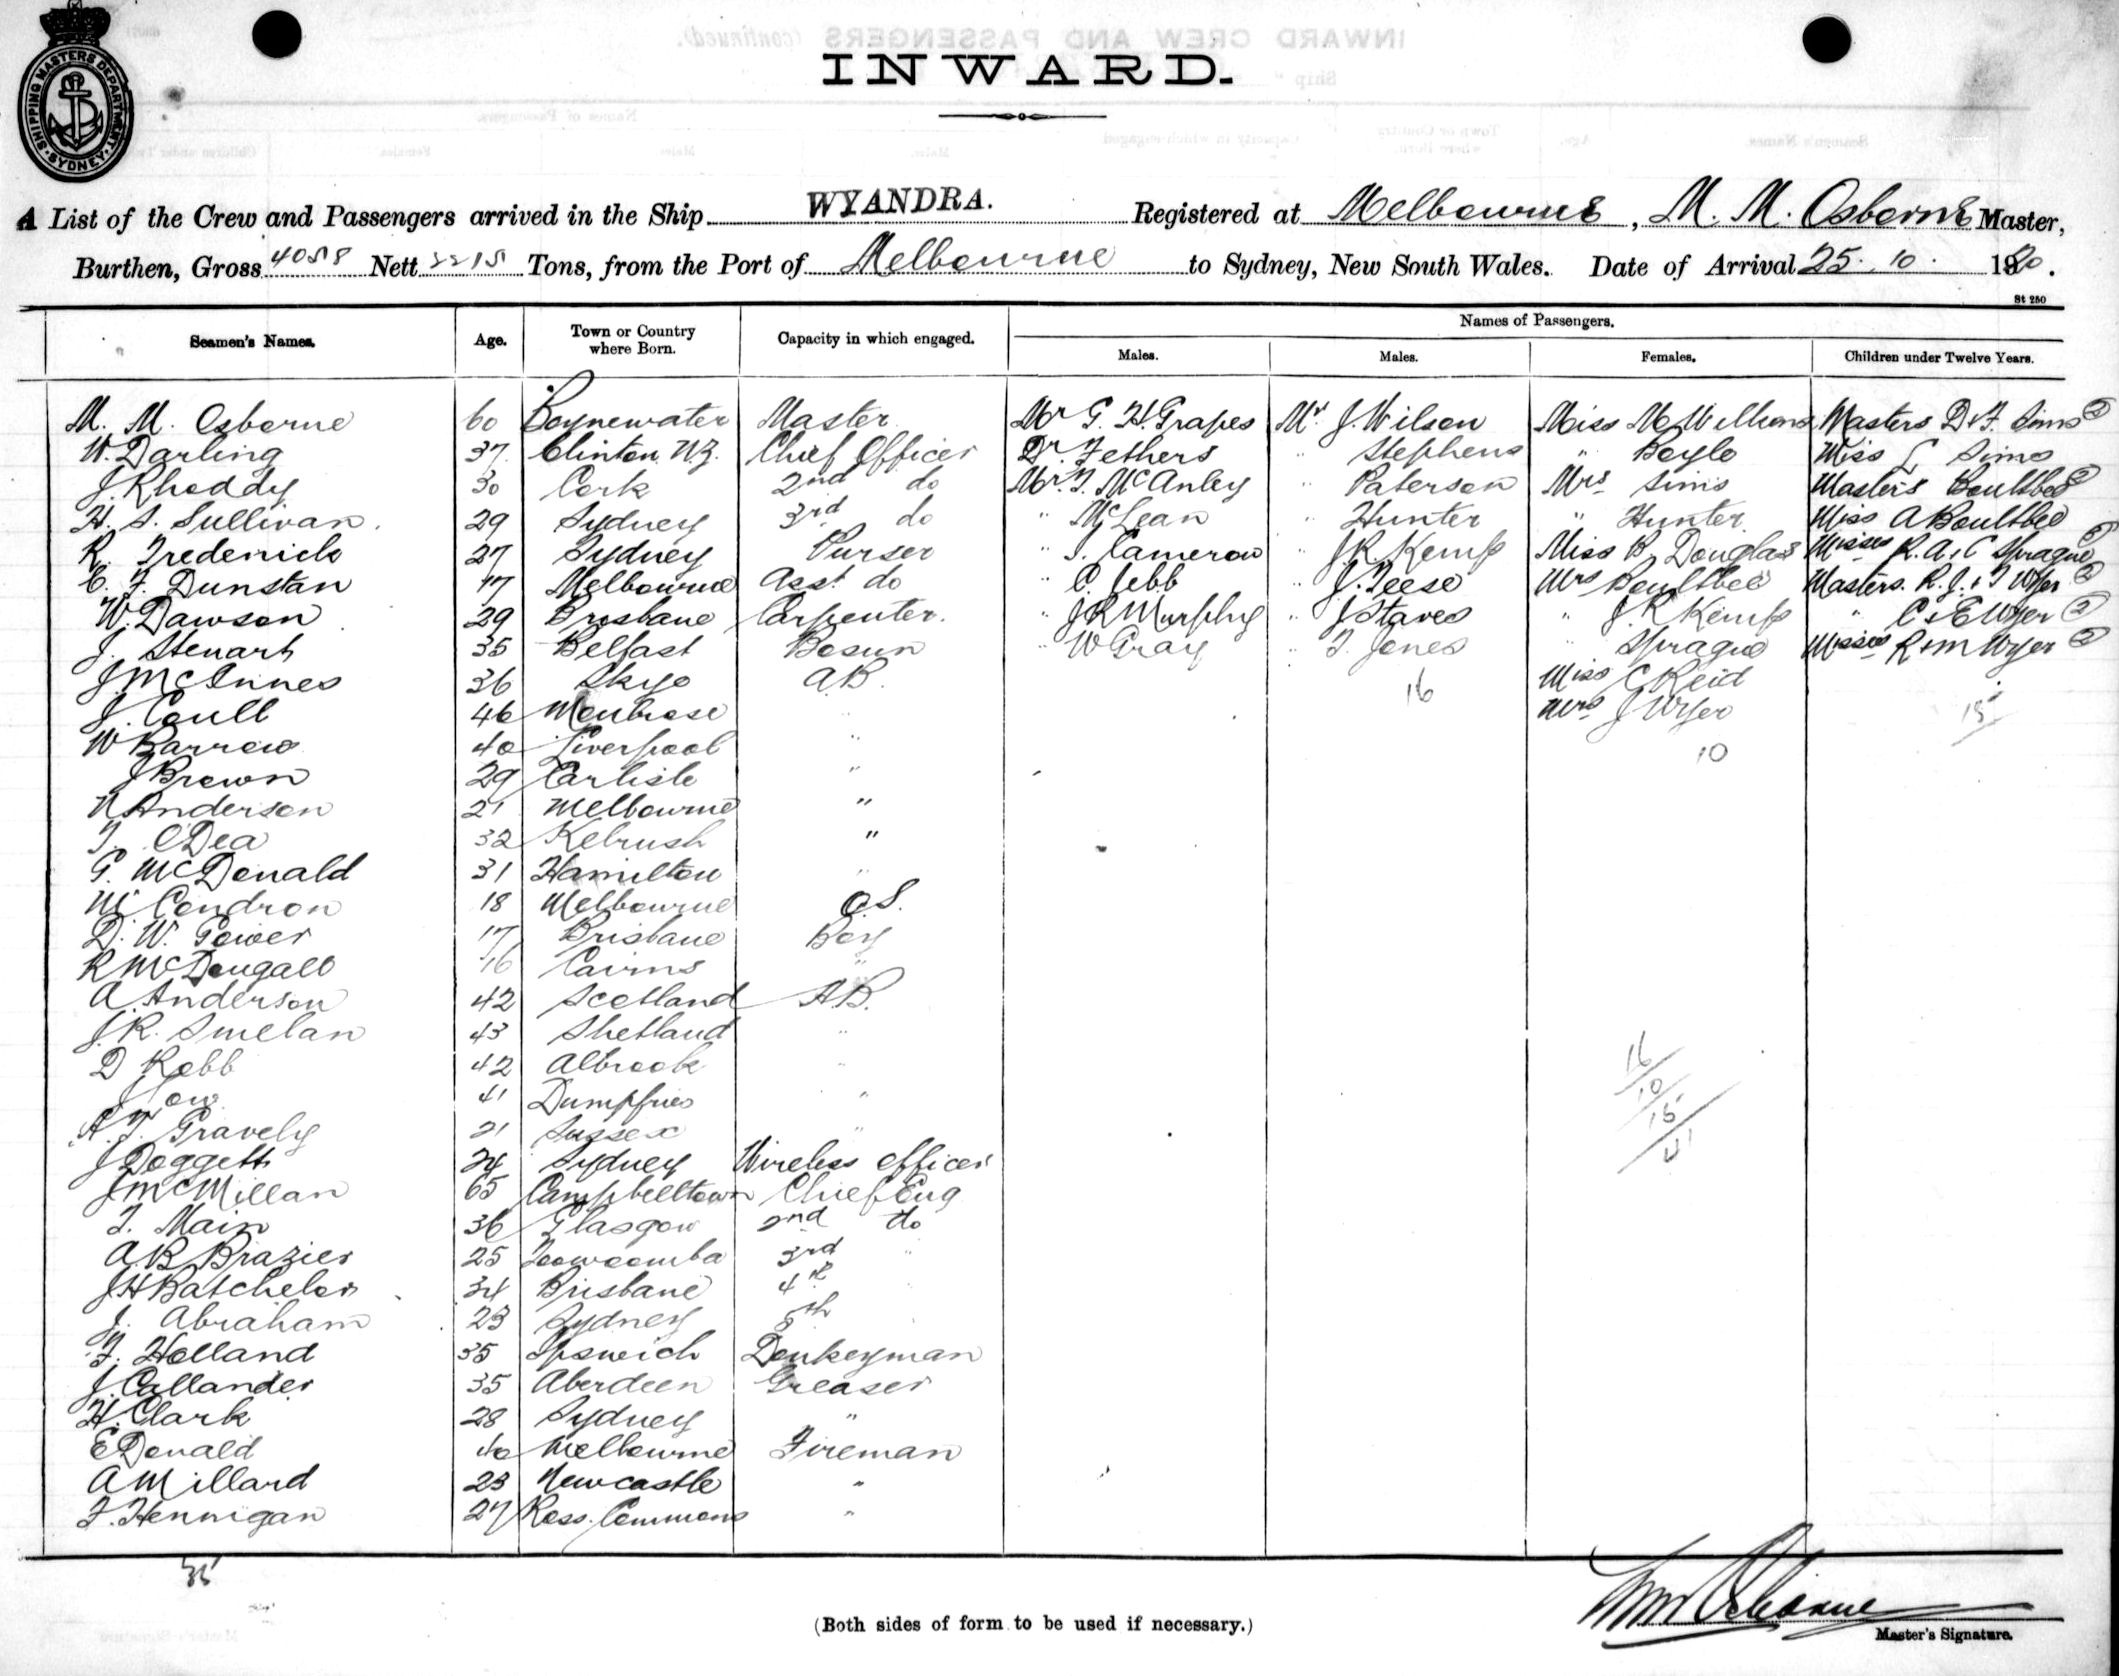 SHIPPING MASTERS DEPARTMENT SYDNEY
INWARD.
A List of the Crew and Passengers arrived in the Ship WYANDRA. Registered at Melbourne, M. M. Osborne Master,
Burthen, Gross 4058 Nett Tons, from the Port of Melbourne to Sydney, New South Wales. Date of Arrival 25. 10. 1920.
St 250
Seamen's Names. Age. Town or Country where Born. Capacity in which engaged. Names of Passengers.
Males. Males. Females. Children under Twelve Years.
M. M. Osborne 60 Boynewater Master Mr G. H. Grapes Mr J. Wilson Miss Masters D & F. Sims 2
W. Darling 37 Clinton N.Z. Chief Officer Dr Fethers " Stephens " Boyle Miss Sims
J. Rhoddy 30 Cork 2nd do Mr T. McAnley " Paterson Mrs Sims Masters Boultbee 2
H. S. Sullivan. 29 Sydney 3rd do " McLean " Hunter " Hunter Miss A Boultbee
R. Frederick 27 Sydney Purser " Cameron " J R. Kemp Miss B. Douglas Misses R. A. & C Sprague 3
C. F. Dunstan 17 Melbourne Asst do " C. Webb " J. Teese Mrs Boultbee Masters. R. J. & T Wyer 2
W. Dawson 29 Brisbane Carpenter. " J R Murphy " J Staves " J. R Kemp " C & E Wyer 2
J. Stewart 35 Belfast Bosun " W Gray T. Jones " Sprague Misses R & M Wyer 2
J McInnes 36 Skye A.B. 16 Miss C Reid
J. Coull 46 Montrose " Mrs J Wyer 15
W Barrow 40 Liverpool " 10
J Brown 29 Carlisle "
Anderson 21 Melbourne "
T. O'Dea 32 Kelrush "
G. McDonald 31 Hamilton "
Condron 18 Melbourne O.S.
D. W. Gower 17 Brisbane Boy
R McDougall 16 Cairns "
A. Anderson 42 Scotland A.B.
J. R. Smelan 43 Shetland "
D Robb 42 Albrook " 16
41 Dumpfries " 10
A. T. Gravely 21 Sussex " 15
J Doggett 24 Sydney Wireless Officer 41
J McMillan 65 Campbelltown Chief Eng
T. Main 36 Glasgow 2nd do
A. B Brazier 25 Toowoomba 3rd "
J H Batchelor 34 Brisbane 4th
J. Abraham 23 Sydney 5th
F. Holland 35 Ipswich Donkeyman
J. Callander 35 Aberdeen Greaser
H. Clark 28 Sydney "
E Donald 40 Melbourne Fireman
A Millard 23 Newcastle "
F. Hennigan 27 Ross. Commons "
35
(Both sides of form to be used if necessary.)
Master's Signature.